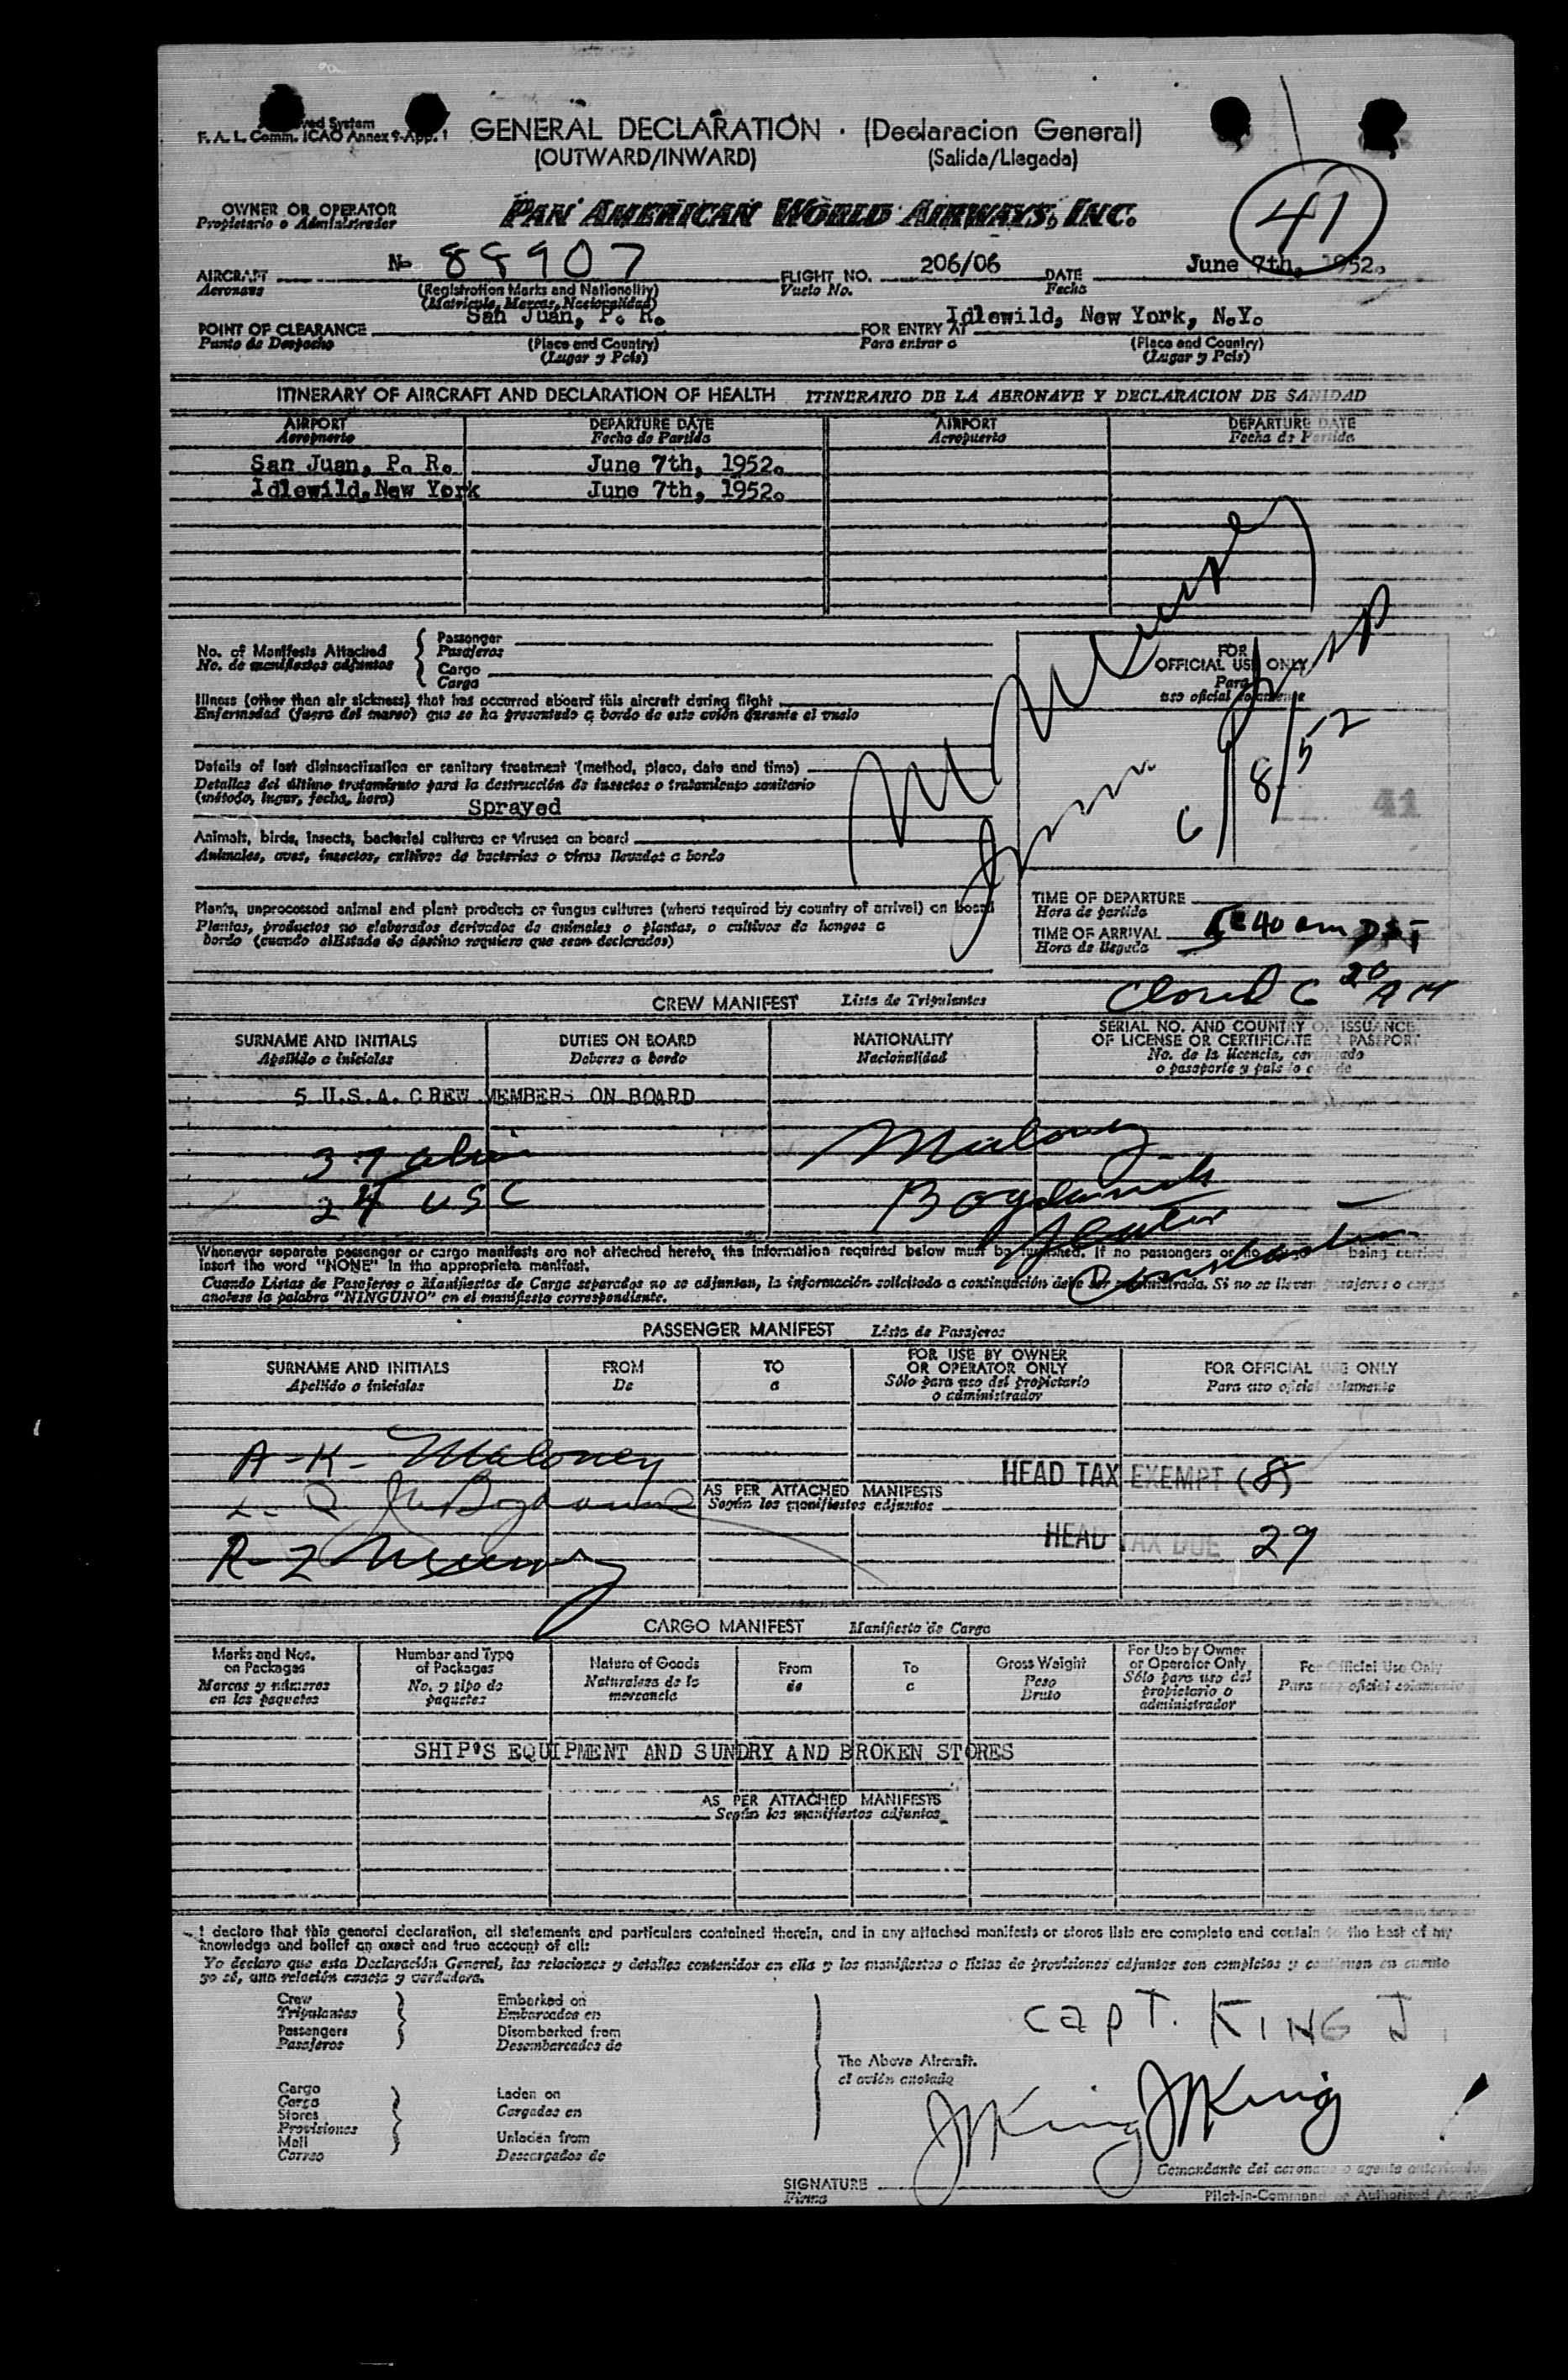 ved System
F. A. L. Comm. ICAO Annex 9-App. 1
GENERAL DECLARATION · (Declaracion General)
(OUTWARD/INWARD) (Salida/Llegada)
OWNER OR OPERATOR
Propietario o Administrador
PAN AMERICAN WORLD AIRWAYS, INC.
41
AIRCRAFT N- 88907 FLIGHT NO. 206/06 DATE June 7th, 1952.
Aeronave (Registration Marks and Nationality) Vuelo No. Fecha
(Matricula, Marcas, Nacionalidad)
POINT OF CLEARANCE San Juan, P. R. FOR ENTRY AT Idlewild, New York, N.Y.
Punto de Despacho (Place and Country) Para entrar a (Place and Country)
(Lugar y Pais) (Lugar y Pais)
ITINERARY OF AIRCRAFT AND DECLARATION OF HEALTH ITINERARIO DE LA AERONAVE Y DECLARACION DE SANIDAD
AIRPORT DEPARTURE DATE AIRPORT DEPARTURE DATE
Aeropuerto Fecha de Partida Aeropuerto Fecha de Partida
San Juan, P. R. June 7th, 1952.
Idlewild, New York June 7th, 1952.
No. of Manifests Attached
No. de manifiestos adjuntos
Passenger
Pasajeros
Cargo
Carga
FOR
OFFICIAL USE ONLY
Para
uso oficial solamente
6/8/52
41
Illness (other than air sickness) that has occurred aboard this aircraft during flight
Enfermedad (fuera del mareo) que se ha presentado a bordo de este avión durante el vuelo
Details of last disinsectization or sanitary treatment (method, place, date and time)
Detalles del último tratamiento para la destrucción de insectos o tratamiento sanitario
(método, lugar, fecha, hora)
Sprayed
Animals, birds, insects, bacterial cultures or viruses on board
Animales, aves, insectos, cultivos de bacterias o virus llevados a bordo
Plants, unprocessed animal and plant products or fungus cultures (where required by country of arrival) on board
Plantas, productos no elaborados derivados de animales o plantas, o cultivos de hongos a
bordo (cuando el Estado de destino requiere que sean declarados)
TIME OF DEPARTURE
Hora de partida
TIME OF ARRIVAL 5:40 am DST
Hora de llegada
Closed 6 20 AM
CREW MANIFEST Lista de Tripulantes
SURNAME AND INITIALS DUTIES ON BOARD NATIONALITY SERIAL NO. AND COUNTRY OF ISSUANCE
OF LICENSE OR CERTIFICATE OR PASSPORT
Apellido e iniciales Deberes a bordo Nacionalidad No. de la licencia, certificado
o pasaporte y pais lo
5 U.S.A. CREW MEMBERS ON BOARD
Maloney
24 USC
Whenever separate passenger or cargo manifests are not attached hereto, the information required below must be furnished. If no passengers or no being carried,
insert the word "NONE" in the appropriate manifest.
Cuando Listas de Pasajeros o Manifiestos de Carga separados no se adjuntan, la información solicitada a continuación debe ser suministrada. Si no se llevan pasajeros o carga
anotese la palabra "NINGUNO" en el manifiesto correspondiente.
PASSENGER MANIFEST Lista de Pasajeros
SURNAME AND INITIALS FROM TO FOR USE BY OWNER
OR OPERATOR ONLY FOR OFFICIAL USE ONLY
Apellido e iniciales De a Sólo para uso del propietario
o administrador Para uso oficial solamente
A-K- Maloney
HEAD TAX EXEMPT (8)
AS PER ATTACHED MANIFESTS
Según los manifiestos adjuntos
HEAD TAX DUE 29
CARGO MANIFEST Manifiesto de Carga
Marks and Nos.
on Packages
Marcas y números
en los paquetes
Number and Type
of Packages
No. y tipo de
paquetes
Nature of Goods
Naturaleza de la
mercancia
From
de
To
a
Gross Weight
Peso
Bruto
For Use by Owner
or Operator Only
Sólo para uso del
propietario o
administrador
For Official Use Only
Para uso oficial solamente
SHIP'S EQUIPMENT AND SUNDRY AND BROKEN STORES
AS PER ATTACHED MANIFESTS
Según los manifiestos adjuntos
I declare that this general declaration, all statements and particulars contained therein, and in any attached manifests or stores lists are complete and contain to the best of my
knowledge and belief an exact and true account of all:
Yo declaro que esta Declaración General, las relaciones y detalles contenidos en ella y los manifiestos o listas de provisiones adjuntos son completos y contienen en cuanto
yo sé, una relación exacta y verdadera.
Crew
Tripulantes
Passengers
Pasajeros
Embarked on
Embarcados en
Disembarked from
Desembarcados de
Cargo
Carga
Stores
Provisiones
Mail
Correo
Laden on
Cargados en
Unladen from
Descargados de
The Above Aircraft.
el avión anotado
CAPT. KING J.
JKing JKing
Comandante del aeronave o agente autorizado
SIGNATURE
Firma
Pilot-in-Command or Authorized Agent